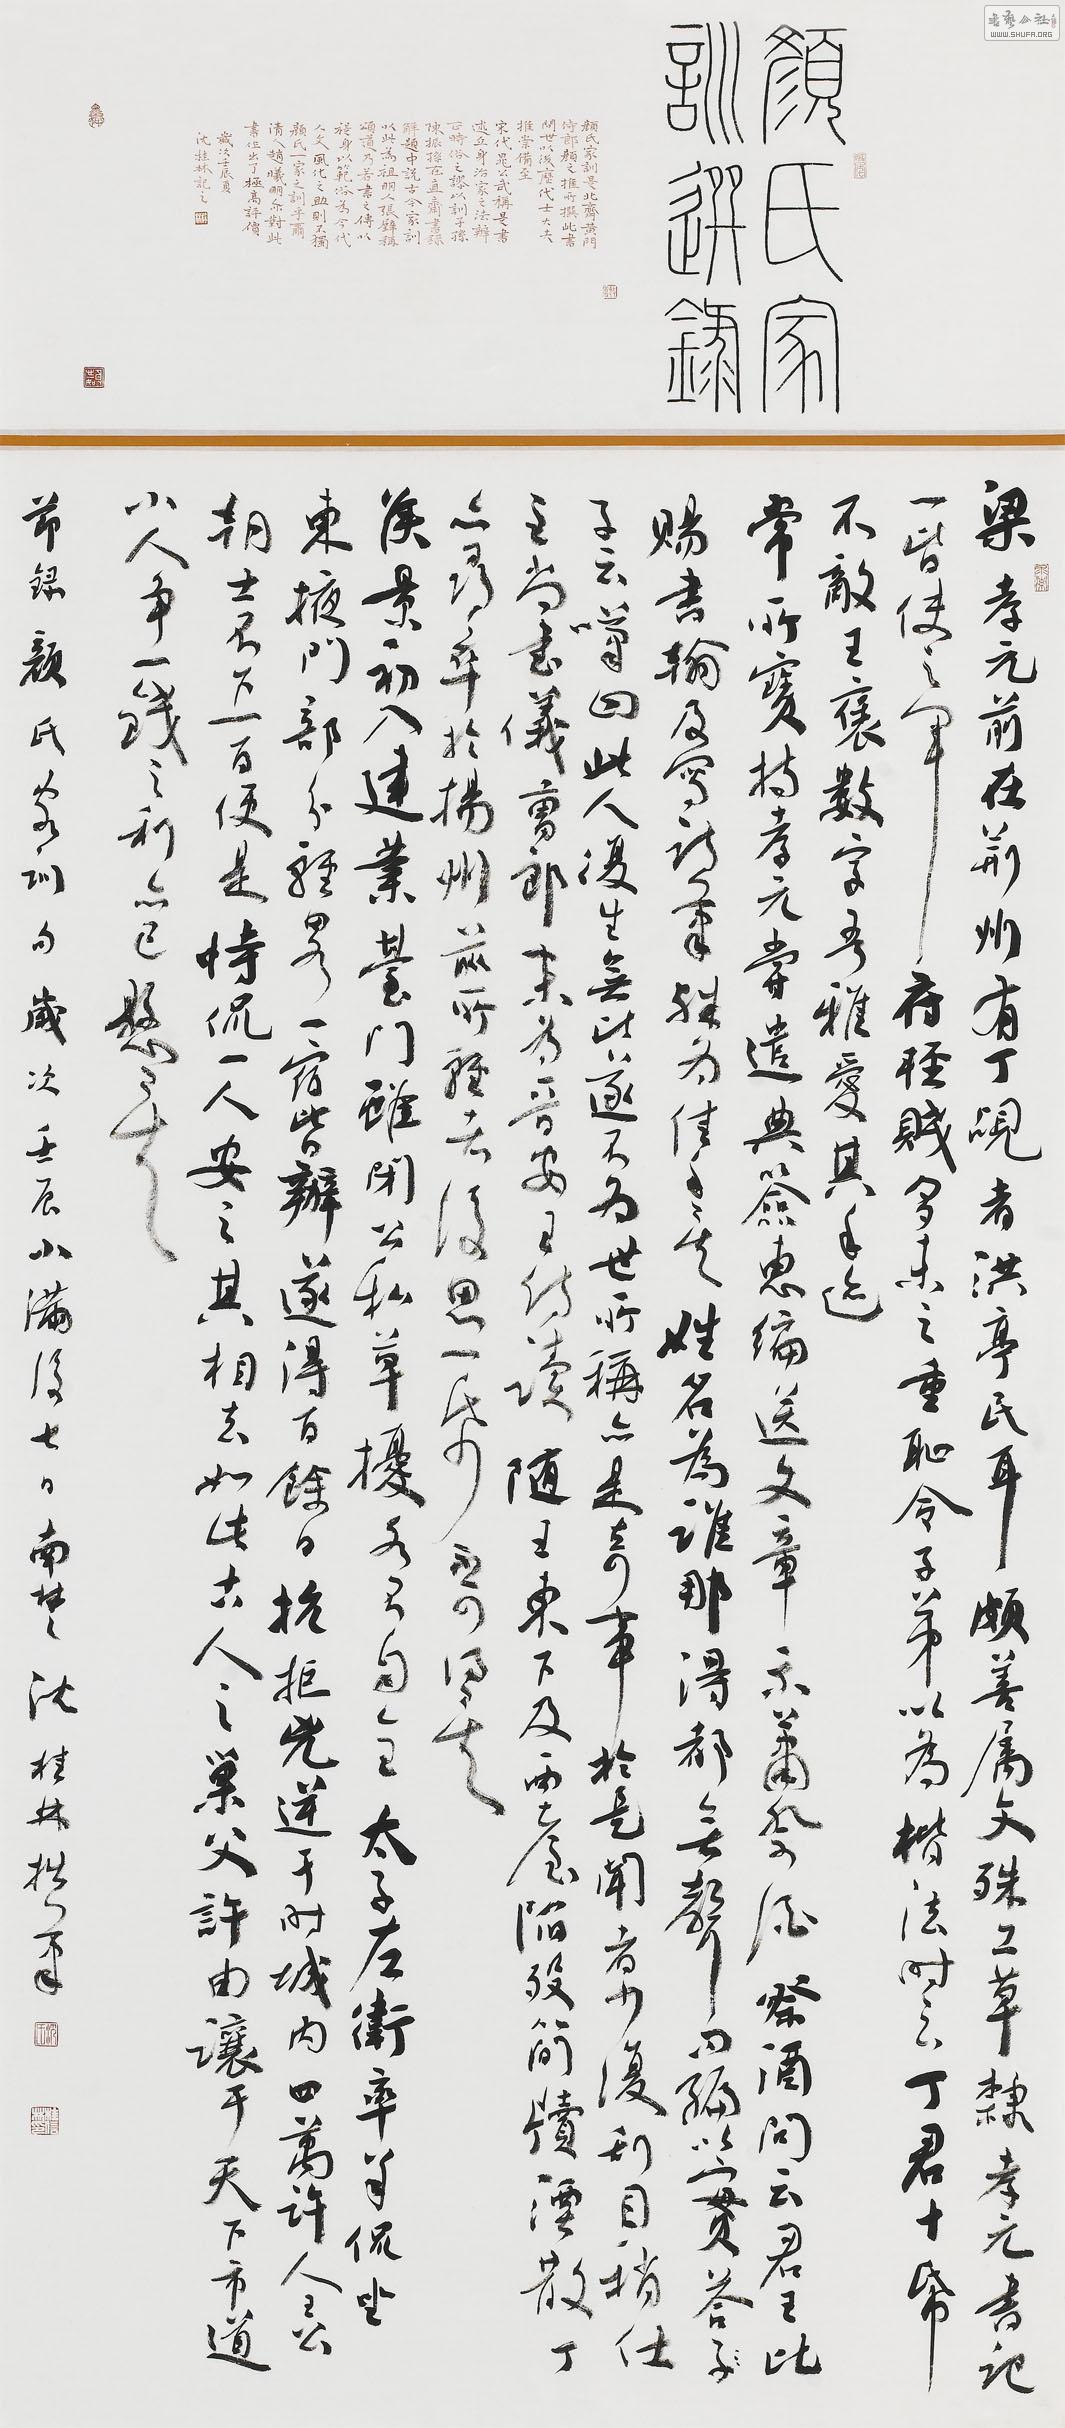 顏氏家
訓選錄
顏氏家訓是北齊黃門
侍郎顏之推所撰此書
問世以後歷代士大夫
推崇備至
宋代晁公武稱是書
述立身治家之法辨
正時俗之謬以訓子孫
陳振孫在直齋書錄
解題中說古今家訓
以此為祖明人張璧稱
頌道乃若書之傳以
禔身以範俗為今代
人文風化之助則不獨
顏氏一家之訓乎爾
清人趙曦明亦對此
書作出了極高評價
歲次壬辰夏
沈桂林記之
梁孝元前在荊州有丁覘者洪亭民耳頗善屬文殊工草隸孝元書記
一皆使之軍府輕賤多未之重恥令子弟以為楷法時云丁君十紙
不敵王褒數字吾雅愛其手迹
常所寶持孝元嘗遣典籤惠編送文章示蕭祭酒祭酒問云君王比
賜書翰及寫詩筆殊為佳手姓名為誰那得都無聲問編以實答子
子云嘆曰此人後生無比遂不為世所稱亦是奇事於是聞者少復刮目稍仕
至尚書儀曹郎末為晉安王侍讀隨王東下及西臺陷歿簡牘湮散丁
亦尋卒於揚州前所輕者後思一紙不可得矣
侯景初入建業臺門雖閉公私草擾各不自全太子左衛率羊侃坐
東掖門部分經略一宿皆辦遂得百餘日抗拒兇逆于時城內四萬許人王公
朝士不下一百便是恃侃一人安之其相去如此古人云巢父許由讓于天下市道
小人爭一錢之利亦已懸矣
節錄顏氏家訓句歲次壬辰小滿後七日南楚沈桂林拙筆
書藝公社
WWW.SHUFA.ORG